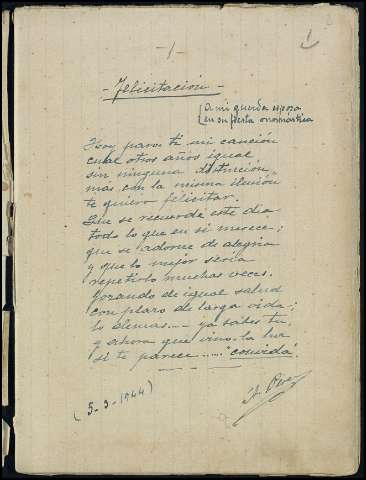 - 1 -
1
- Felicitación -
(A mi querida esposa
en su fiesta onomástica
Hoy para ti mi canción
cual otros años igual
sin ninguna distinción,
mas con la misma ilusión
te quiero felicitar.
Que se recuerde este día
todo lo que en si merece;
que se adorne de alegría
y que lo mejor sería
repetirlo muchas veces.
Gozando de igual salud
con plazo de larga vida;
lo demas.... ya sabes tu,
y ahora que vino la luz
si te parece...... "convida".
(5-3-1944)